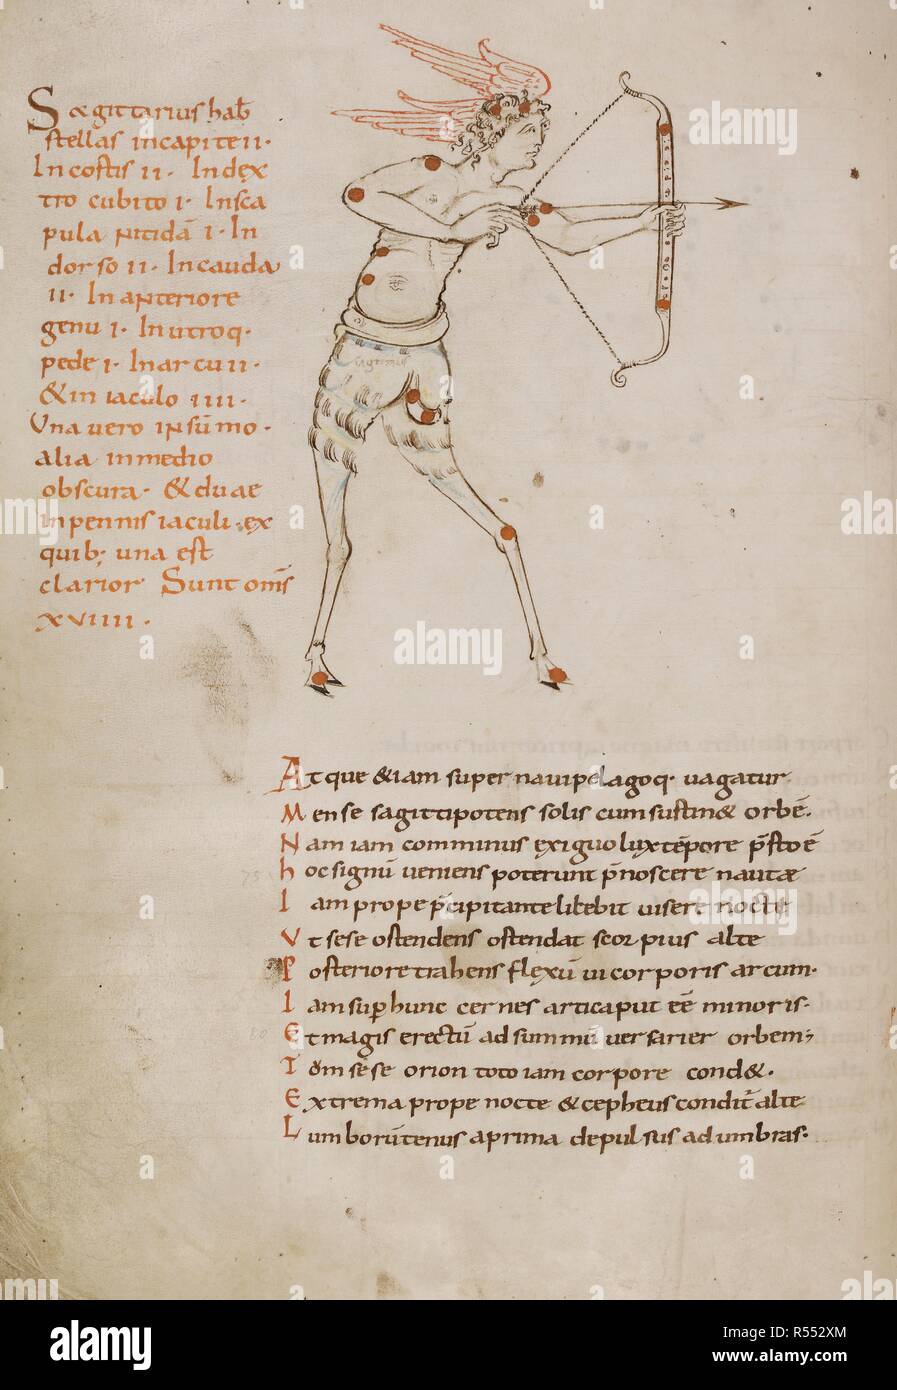 Sagittarius hab&
stellas incapite ii·
In costis ii· Index
tro cubito i· Insca
pula nitidā i· In
dorso ii· Incauda
ii· In anteriore
genu i· In utroq·
pede i· In arcu ii·
& in iaculo iiii·
Una vero insūmo·
alia inmedio
obscura· & duae
inpennis iaculi· ex
quib; una est
clarior Sunt omīs
xviiii·
Atque &iam super navi pelagoq· vagatur
Mense sagittipotens solis cum sustin& orbē·
Nam iam comminus exiguo lux tēpore p̄sto ē
hoc signū veniens poterunt p̄noscere nautae
Iam prope p̄cipitante licebit visere nocte
Ut sese ostendens ostendat scorpius alte
Posteriore trahens flexū vi corporis arcum·
Iam sup hunc cernes arti caput eē minoris·
Et magis erectū ad summū versarier orbem;
Tōm sese orion toto iam corpore cond&·
Extrema prope nocte & cepheus condit̄ alte
Lumborū tenus a prima depulsus ad umbras·
alamy
alamy stock photo
R552XM
www.alamy.com